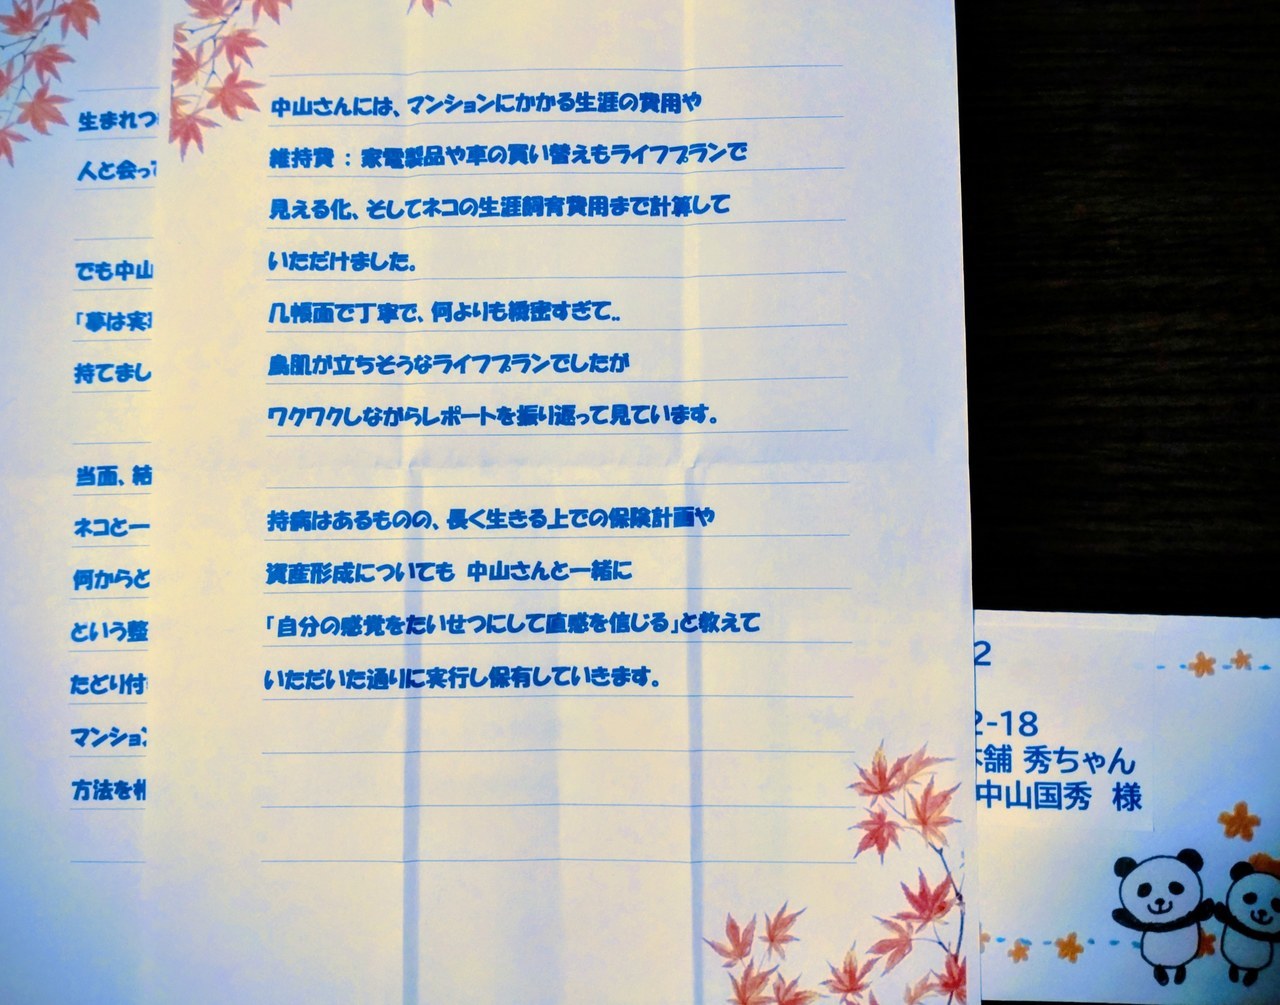 生まれつ
人と会って
でも中山
「夢は実
持てまし
当面、結
ネコと一
何からど
という整
たどり付
マンション
方法を
中山さんには、マンションにかかる生涯の費用や
維持費 : 家電製品や車の買い替えもライフプランで
見える化、そしてネコの生涯飼育費用まで計算して
いただけました。
几帳面で丁寧で、何よりも緻密すぎて..
鳥肌が立ちそうなライフプランでしたが
ワクワクしながらレポートを振り返って見ています。
持病はあるものの、長く生きる上での保険計画や
資産形成についても 中山さんと一緒に
「自分の感覚をたいせつにして直感を信じる」と教えて
いただいた通りに実行し保有していきます。
2
2-18
舗 秀ちゃん
中山国秀 様